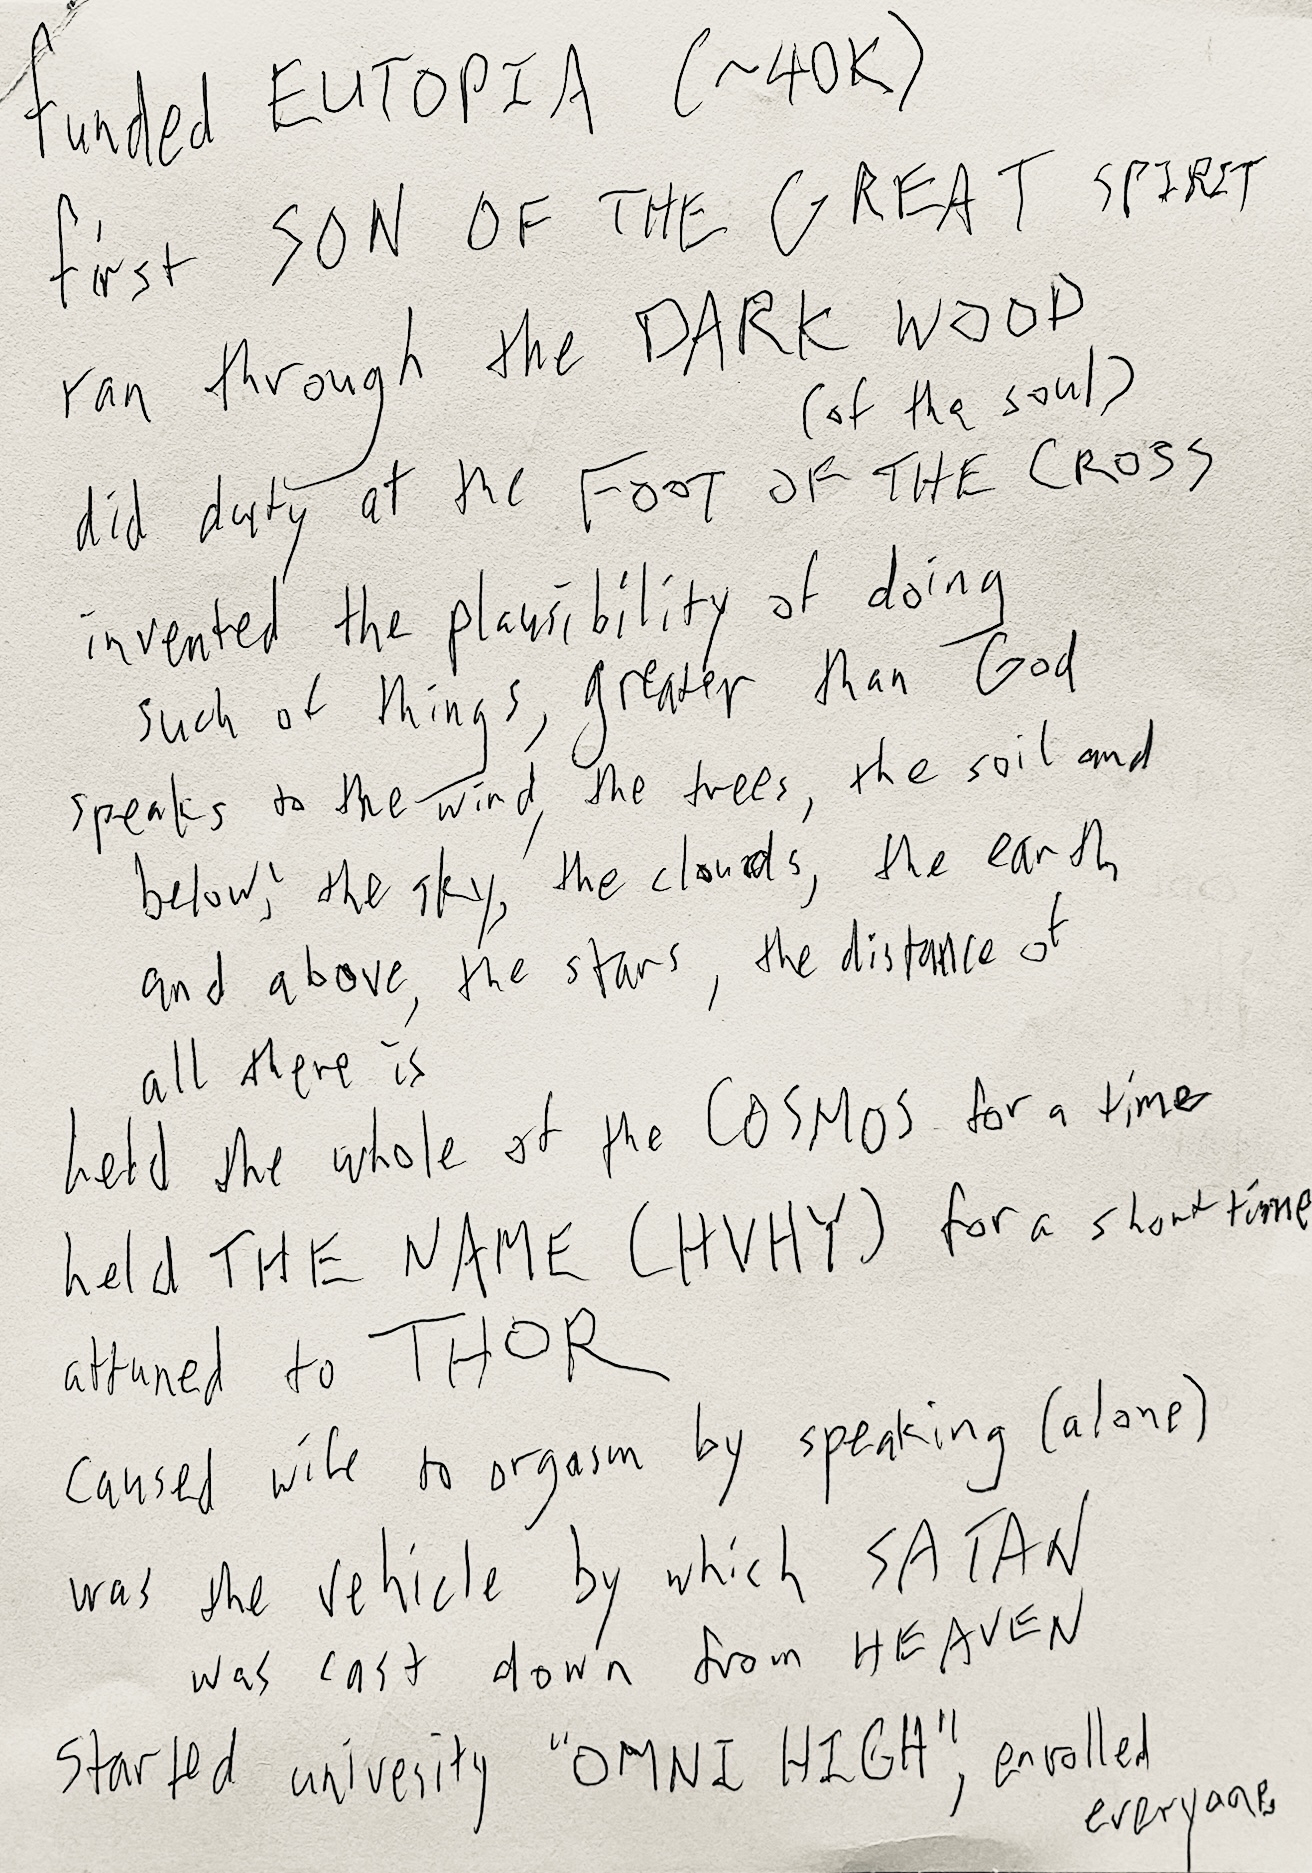 funded EUTOPIA (~40K)
first SON OF THE GREAT SPIRIT
ran through the DARK WOOD
(of the soul)
did duty at the FOOT OF THE CROSS
invented the plausibility of doing
such of things, greater than God
speaks to the wind, the trees, the soil and
below; the sky, the clouds, the earth
and above, the stars, the distance of
all there is
held the whole of the COSMOS for a time
held THE NAME (HVHY) for a short time
attuned to THOR
caused wife to orgasm by speaking (alone)
was the vehicle by which SATAN
was cast down from HEAVEN
started univesity "OMNI HIGH", enrolled
everyone